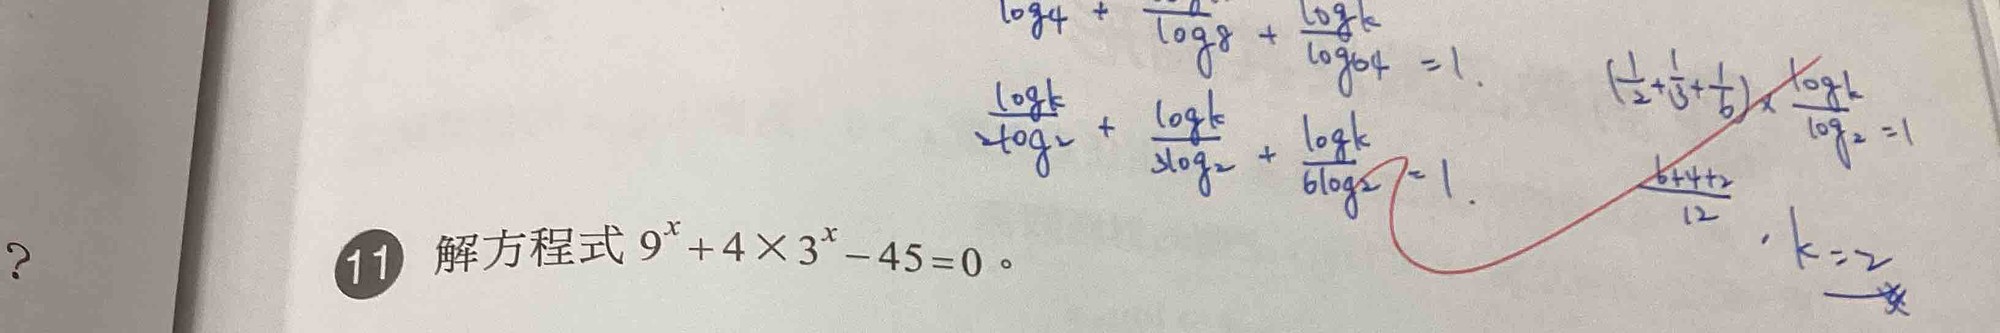 log4 + log8 + logk/log64 = 1.
logk/2log2 + logk/3log2 + logk/6log2 = 1.
(1/2+1/3+1/6)× logk/log2 = 1
6+4+2/12
k=2
?
11 解方程式 9^x + 4 × 3^x − 45 = 0。